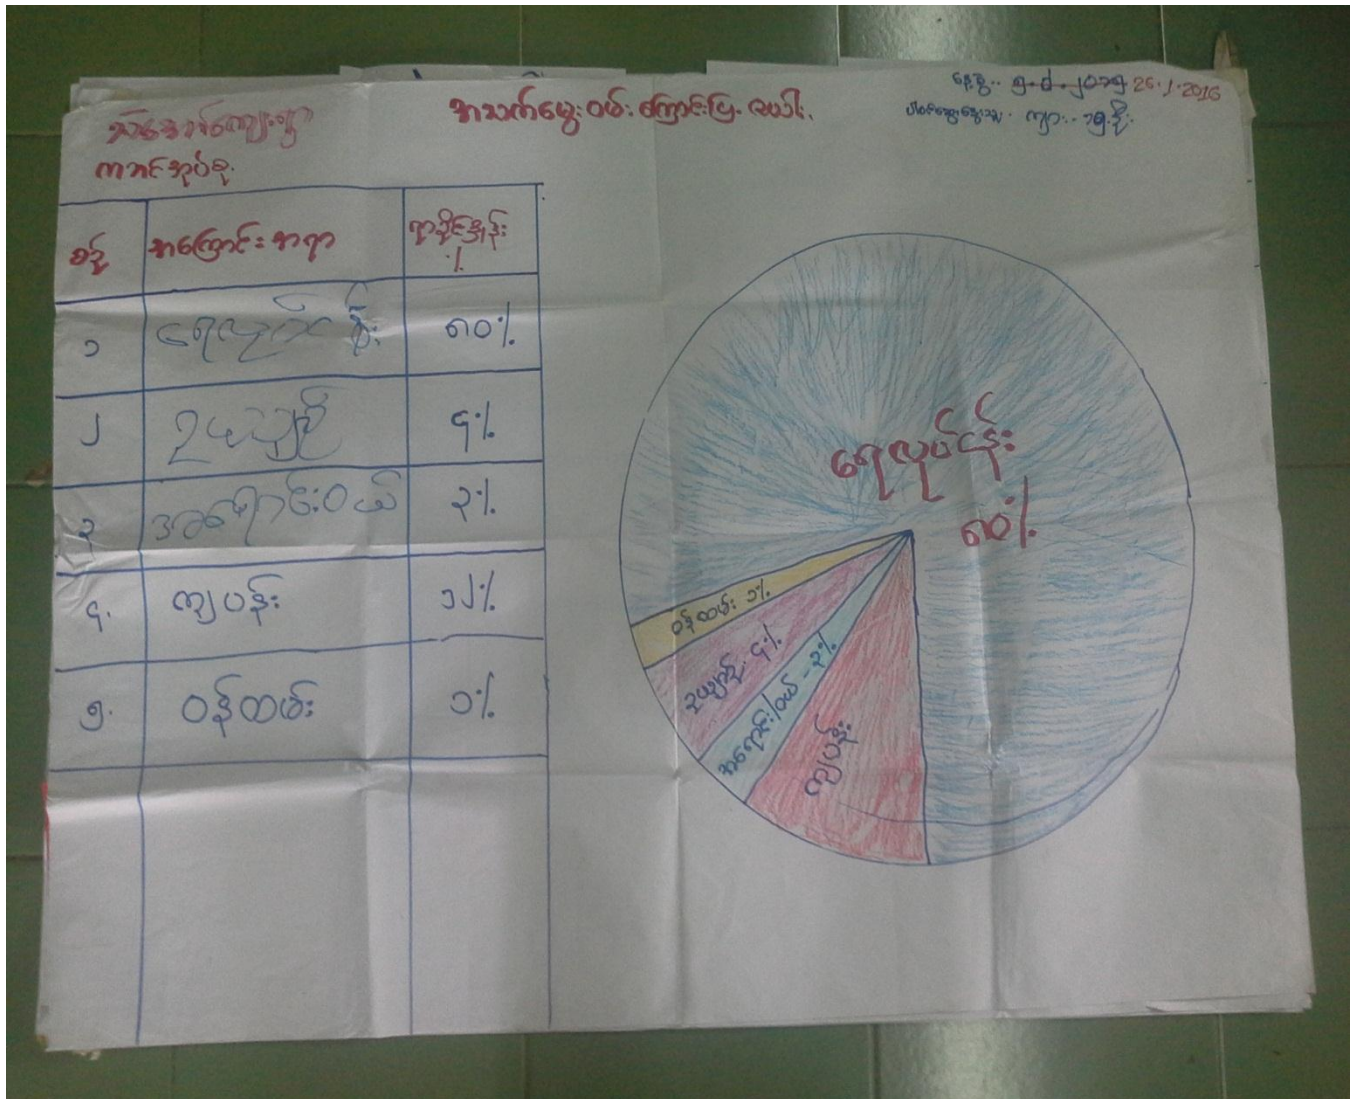 အသက်မွေးဝမ်းကြောင်းပြဇယား
နေ့စွဲ.. ၅.၈.၂၀၁၅ 26.1.2016
ကျား.. ၁၅ ဦး
ကဘင်အုပ်စု.
စဉ် အကြောင်းအရာ ရာခိုင်နှုန်း %
၁ ရေလုပ်ငန်း ၈၀%
၂ ဥယျာဉ် ၄%
၃ အရောင်းဝယ် ၃%
၄. ကျပန်း ၁၂%
၅. ဝန်ထမ်း ၁%
ရေလုပ်ငန်း
၈၀%
ဝန်ထမ်း ၁%
ဥယျာဉ်. ၄%
အရောင်း/ဝယ် - ၃%
ကျပန်း